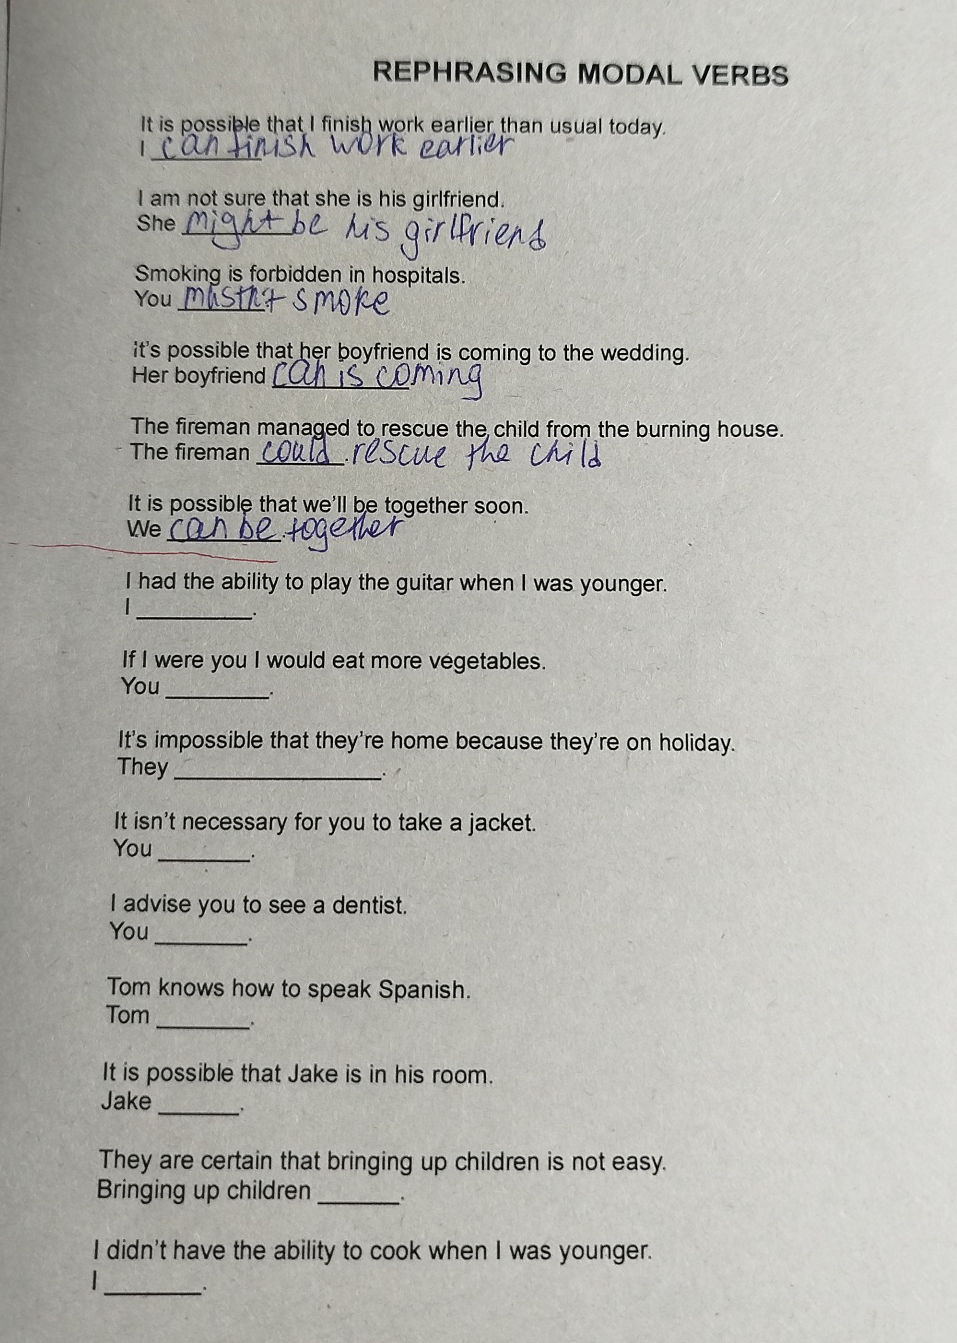 REPHRASING MODAL VERBS
It is possible that I finish work earlier than usual today.
I can finish work earlier
I am not sure that she is his girlfriend.
She might be his girlfriend
Smoking is forbidden in hospitals.
You mustn't smoke
it's possible that her boyfriend is coming to the wedding.
Her boyfriend can is coming
The fireman managed to rescue the child from the burning house.
The fireman could rescue the child
It is possible that we'll be together soon.
We can be together
I had the ability to play the guitar when I was younger.
I ________.
If I were you I would eat more vegetables.
You ________.
It's impossible that they're home because they're on holiday.
They ________________.
It isn't necessary for you to take a jacket.
You _______.
I advise you to see a dentist.
You _______.
Tom knows how to speak Spanish.
Tom _______.
It is possible that Jake is in his room.
Jake ______.
They are certain that bringing up children is not easy.
Bringing up children ______.
I didn't have the ability to cook when I was younger.
I ________.